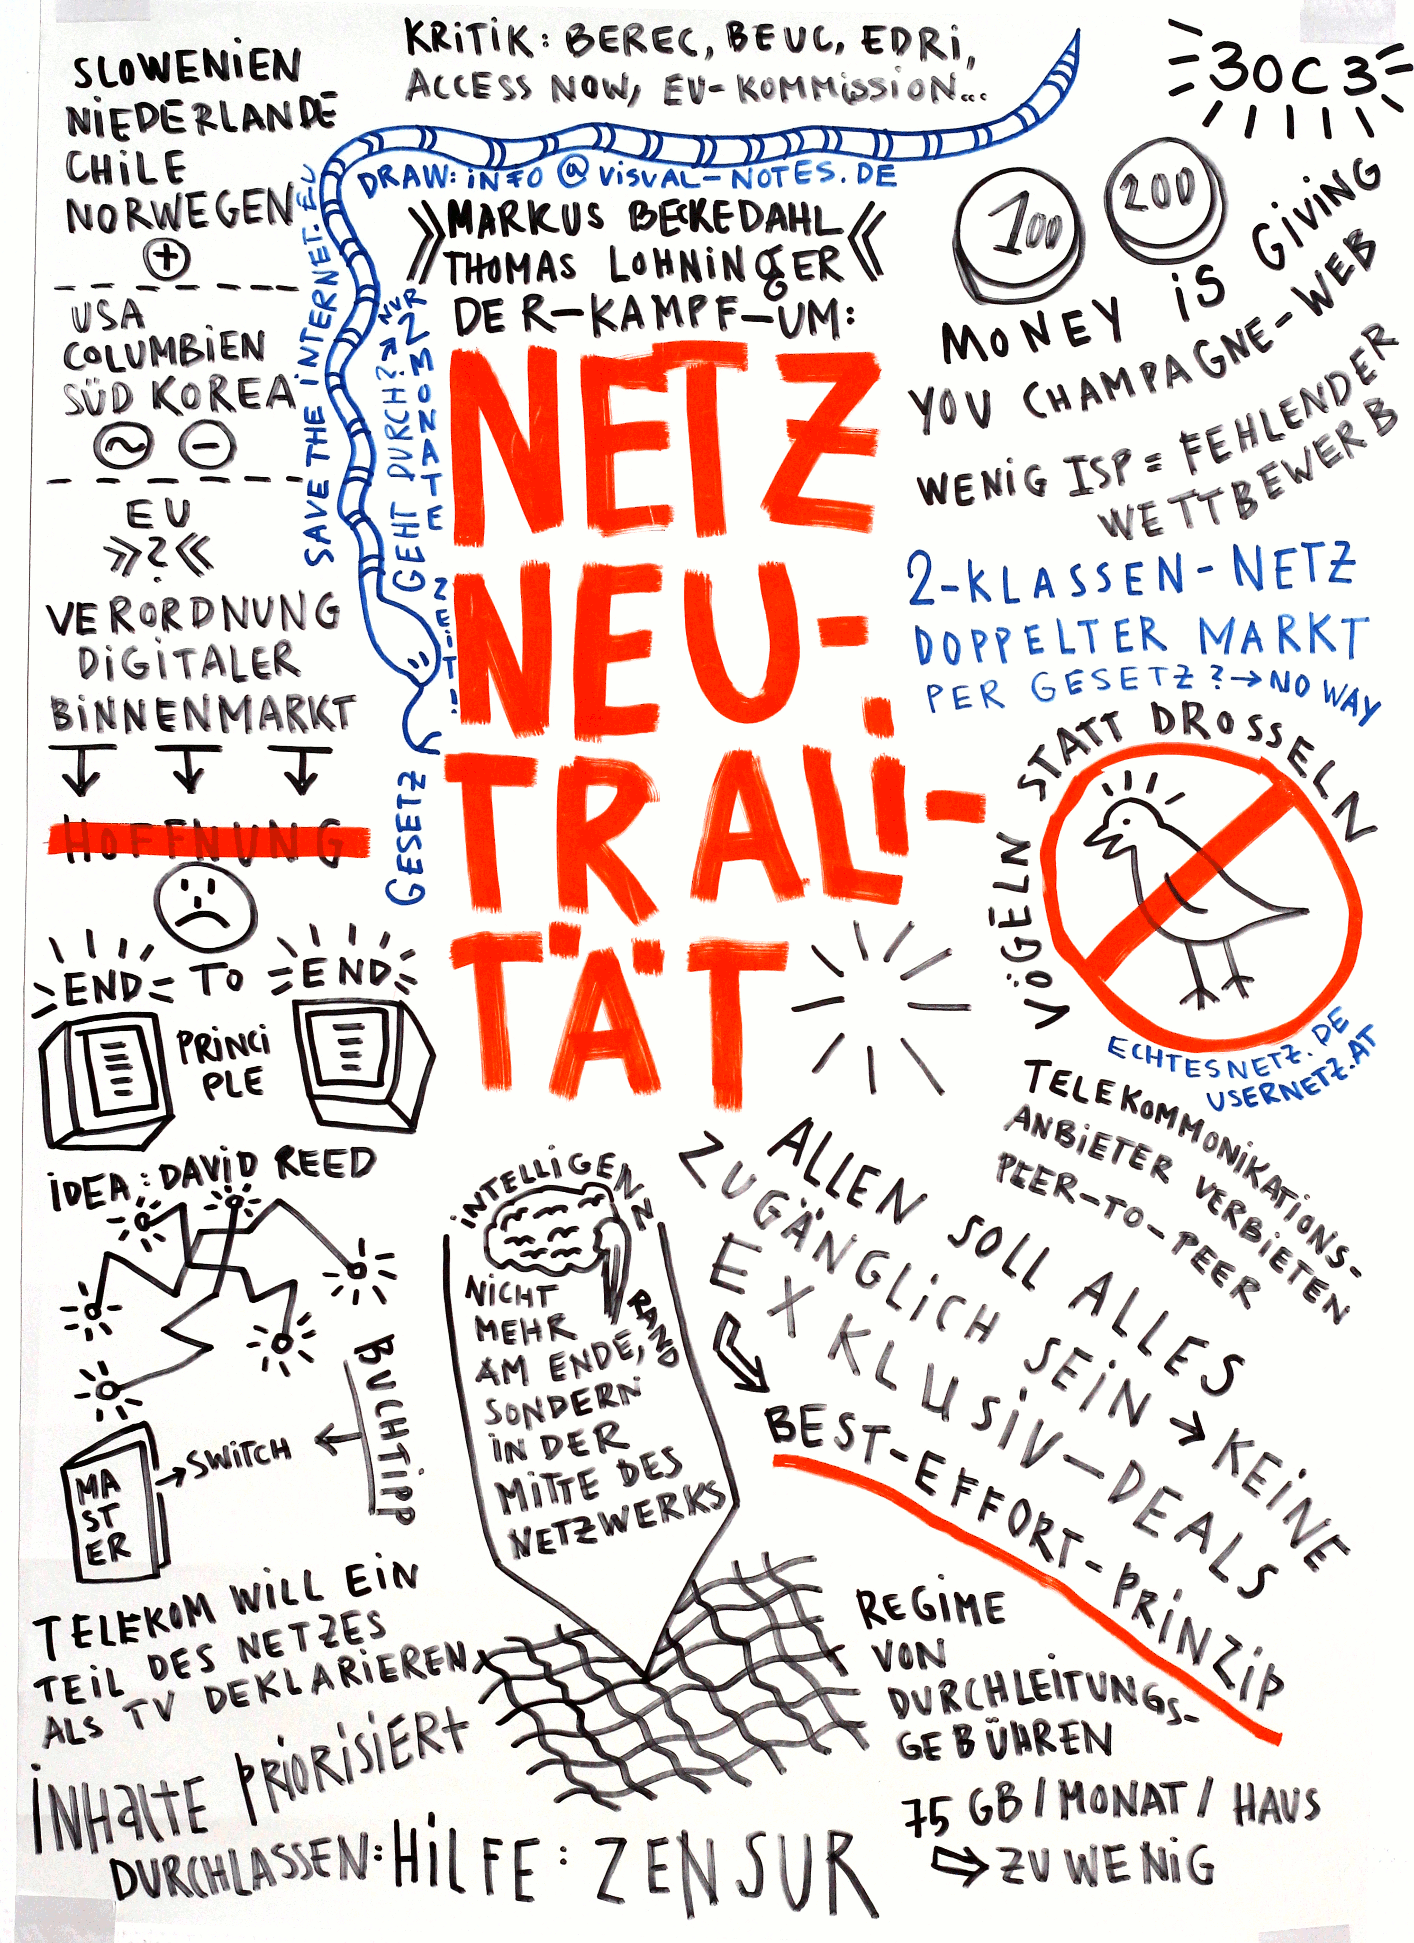 SLOWENIEN
NIEDERLANDE
CHILE
NORWEGEN
+
USA
COLUMBIEN
SÜD KOREA
~ −
EU
»?«
VERORDNUNG
DIGITALER
BINNENMARKT
HOFFNUNG
END TO END
PRINCI
PLE
IDEA: DAVID REED
BUCHTIPP
MA
ST
ER
→ SWITCH
TELEKOM WILL EIN
TEIL DES NETZES
ALS TV DEKLARIEREN
INHALTE PRIORISIERT
DURCHLASSEN: HILFE: ZENSUR
KRITIK: BEREC, BEUC, EDRi,
ACCESS NOW, EU-KOMMISSION...
DRAW: INFO @ VISUAL-NOTES.DE
SAVE THE INTERNET.EU
GEHT DURCH? → NUR
2 MONATE
ZEIT!
GESETZ
»MARKUS BECKEDAHL
THOMAS LOHNINGER«
DER-KAMPF-UM:
NETZ
NEU-
TRALI-
TÄT
INTELLIGENN
RAND
NICHT
MEHR
AM ENDE,
SONDERN
IN DER
MITTE DES
NETZWERKS
30C3
100
200
MONEY IS GIVING
YOU CHAMPAGNE-WEB
WENIG ISP = FEHLENDER
WETTBEWERB
2-KLASSEN-NETZ
DOPPELTER MARKT
PER GESETZ? → NO WAY
VÖGELN STATT DROSSELN
ECHTESNETZ.DE
USERNETZ.AT
TELEKOMMONIKATIONS-
ANBIETER VERBIETEN
PEER-TO-PEER
ALLEN SOLL ALLES
ZUGÄNGLICH SEIN → KEINE
EXKLUSIV-DEALS
BEST-EFFORT-PRINZIP
REGIME
VON
DURCHLEITUNGS-
GEBÜHREN
75 GB/MONAT/HAUS
ZU WENIG